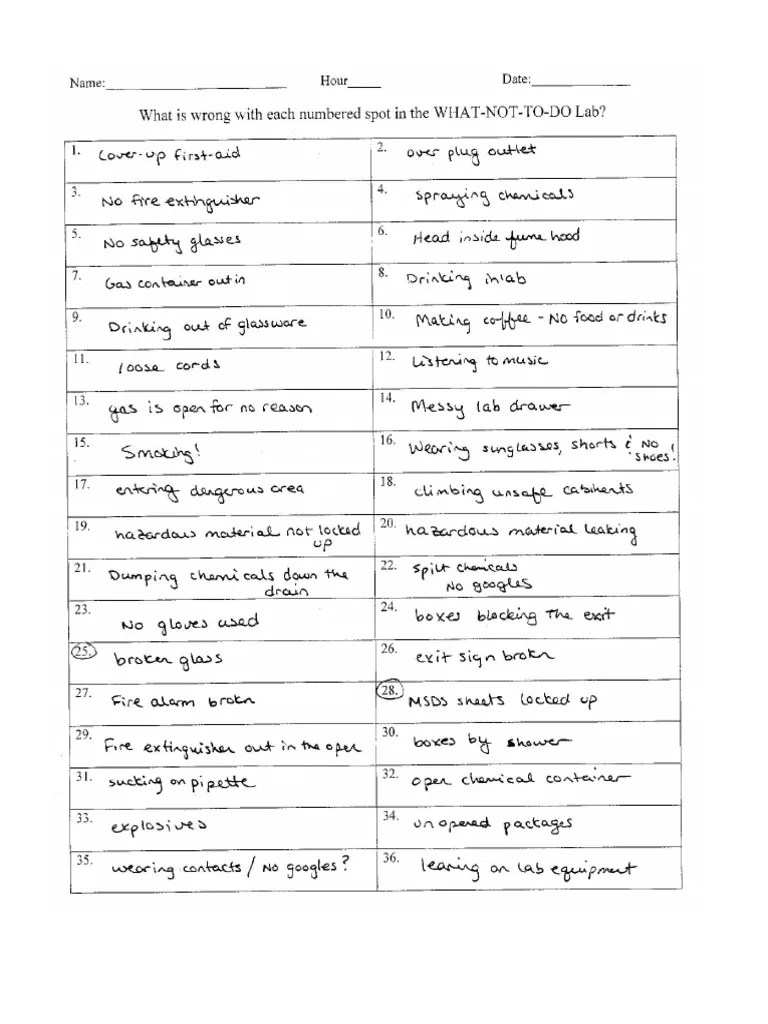 Name: Hour Date:
What is wrong with each numbered spot in the WHAT-NOT-TO-DO Lab?
1. Cover-up first-aid
2. over plug outlet
3. No fire extinguisher
4. Spraying chemicals
5. No safety glasses
6. Head inside fume hood
7. Gas container out in
8. Drinking in lab
9. Drinking out of glassware
10. Making coffee - No food or drinks
11. loose cords
12. Listening to music
13. gas is open for no reason
14. Messy lab drawer
15. Smoking!
16. Wearing sunglasses, shorts & NO
shoes!
17. entering dangerous area
18. climbing unsafe cabinents
19. hazardous material not locked
up
20. hazardous material leaking
21. Dumping chemicals down the
drain
22. spilt chemicals
No googles
23. No gloves used
24. boxes blocking the exit
25. broken glass
26. exit sign brokn
27. Fire alarm brokn
28. MSDS sheets locked up
29. Fire extinguisher out in the open
30. boxes by shower
31. sucking on pipette
32. open chemical container
33. explosives
34. unopened packages
35. wearing contacts / No googles?
36. leaning on lab equipment